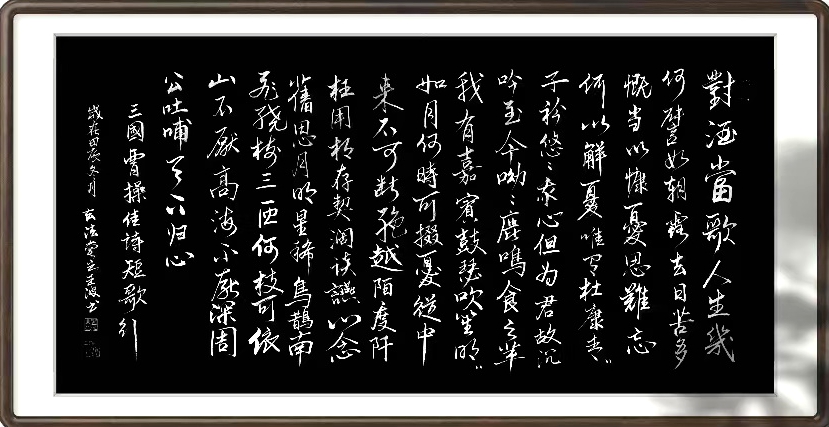 對酒當歌人生幾
何譬如朝露去日苦多
慨当以慷憂思難忘
何以解憂唯有杜康青〻
子衿悠〻我心但为君故沉
吟至今呦〻鹿鳴食之苹
我有嘉賓鼓瑟吹笙明〻
如月何時可掇憂從中
来不可断絶越陌度阡
枉用相存契阔谈讌心念
舊恩月明星稀烏鵲南
飛繞樹三匝何枝可依
山不厭高海不厭深周
公吐哺天下归心
三國曹操佳詩短歌行
歲在甲辰冬月